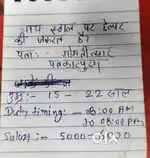 चाय स्टाल पर हेल्पर
की जरूरत है।
पता:- गोमतीनगर
पत्रकारपुरम
उम्र:- 15 - 22 साल
Duty timing:- 08:00 AM
To 08:00 PM
Salary:- 5000-6000
OLX